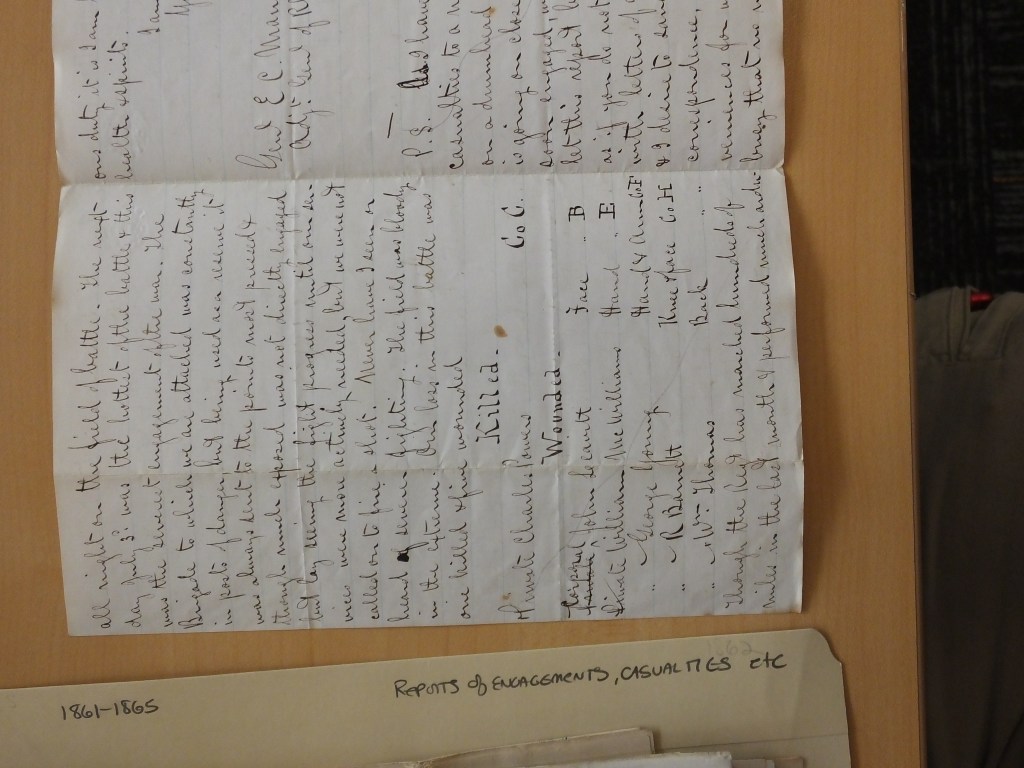 all night on the field of battle. The next
day July 3d was the hottest of the battle & this
was the severest engagement of the war. The
Brigade to which we are attached was constantly
in posts of danger, but being used as a reserve it
was always sent to the points most pressed &
though much exposed was not directly engaged
but lay seeing the fight progress until our ser-
vices were more actively needed, but we were not
called on to fire a shot. Never have I seen or
heard of severer fighting. The field was bloody
in the extreme. Our loss in this battle was
one killed & five wounded
Killed.
Private Charles Powers Co C.
Wounded.
Corporal John Leavitt Face " B
Private William McWilliams Hand " E
" George Young Hand & Arm Co F
" R Barnett Three face Co H
" Wm Thomas Back " "
Though the Regt has marched hundreds of
miles in the last month & performed much ardu-
ous duty, it is I am
health & spirits.
I am
Genl E C
Adjt Genl of
P.S. has
casualties to a
on a drumhead
is going on close
soon engaged
let this report
as if you do not
with letters of
& I desire to
correspondence,
long, that no
1861-1865
REPORTS of ENGAGEMENTS, CASUALTIES etc
1862